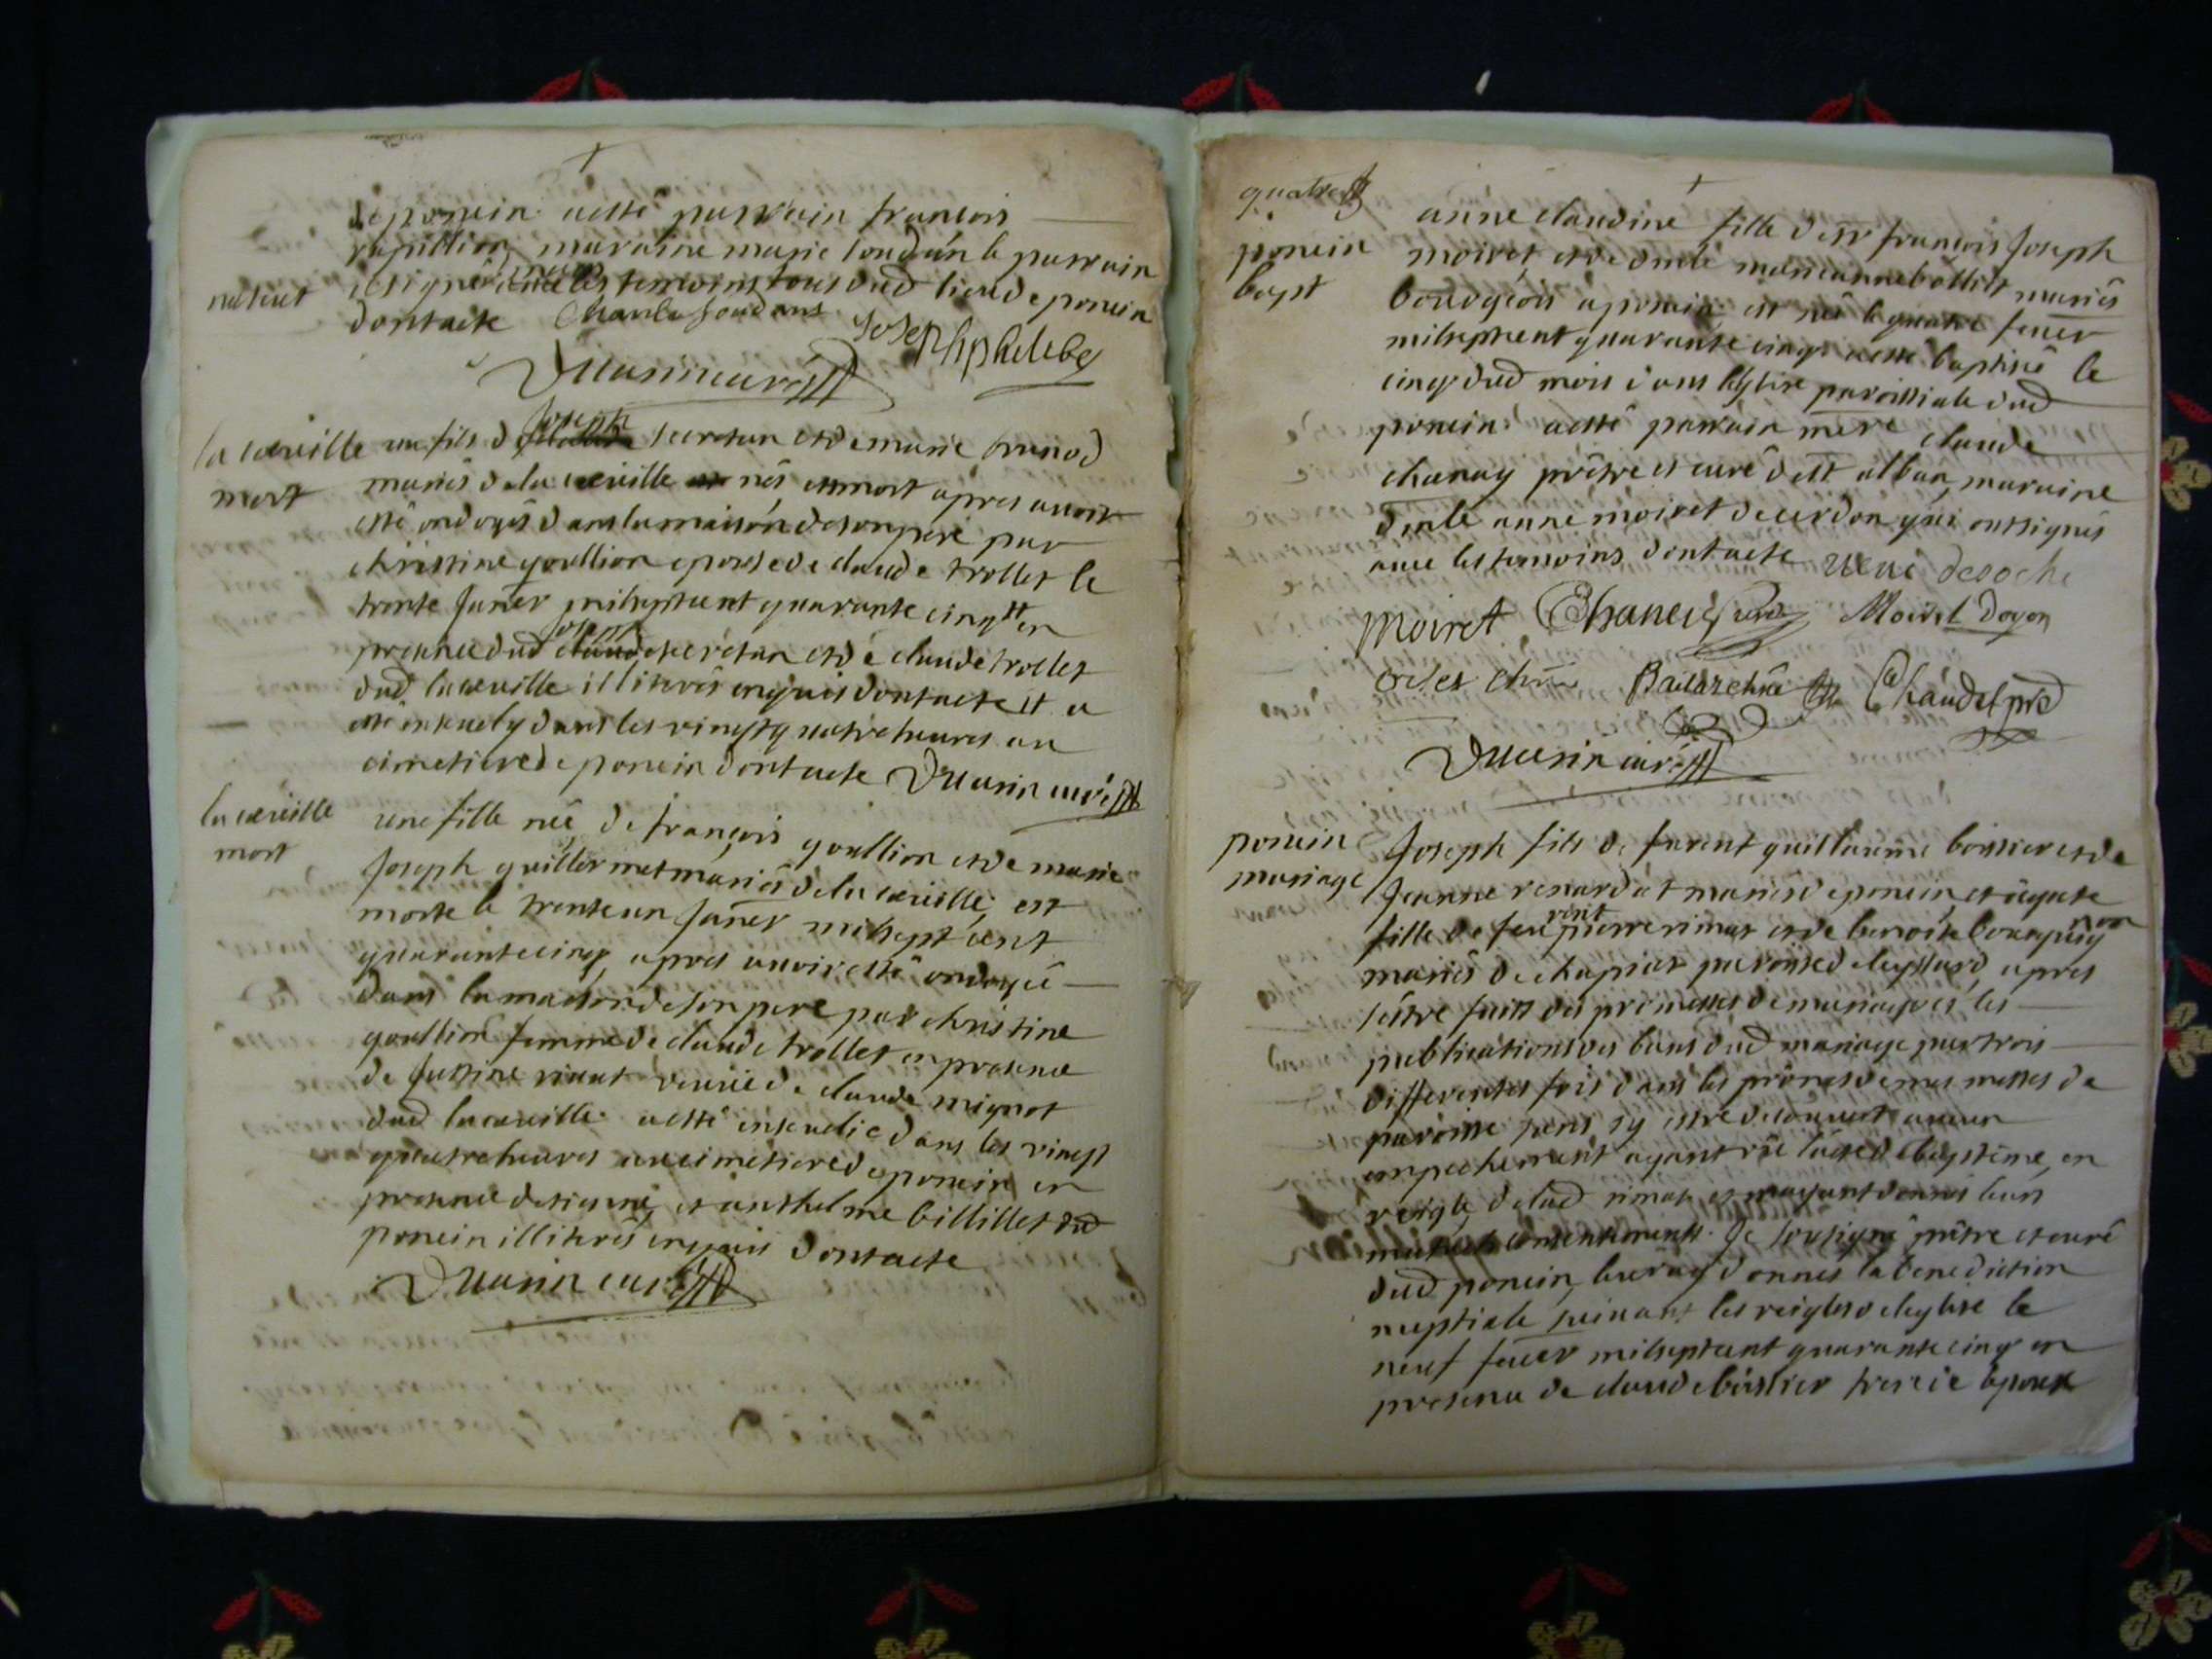 de poncin a esté parrain francois
rapillion, maraine marie soudan le parrain
et signés avec les temoins tous dud lieu de poncin
dont acte Charle Soudans
Joseph philebe
D'uarin curé
la cueuille
mort
un fils de Joseph secretan et de marie brunod
mariés de la cueuille nés est mort apres avoir
esté ondoyés dans la maison de son pere par
christine goullion epouse de claude trollet le
trente Janer milseptcent quarante cinq en
presence dud Joseph secretan et de claude trollet
dud la cueuille illiterés enquis dont acte et a
esté ensevely dans les vingtquatre heures au
cimetiere de poncin dont acte D'uarin curé
la cueuille
mort
une fille née de françois goullion et de marie
Joseph guillermet mariés de la cueuille, est
morte le trenteun Janer milsept cent
quarantecinq, apres avoir esté ondoyée
dans la maison de son pere par christine
goullion femme de claude trollet en presence
de Justine vveuve de claude mignot
dud la cueuille a esté ensevelie dans les vingt
quatre heures au cimetiere de poncin en
presence et anthelme billillet dud
poncin illiterés enquis dont acte
D'uarin curé
quatre
poncin
bapt
anne claudine fille de sr francois Joseph
moiret et de dmle marianne bollict mariés
bourgeois a poncin est née le quatre feuer
milseptcent quarante cinq a esté baptisée le
cinq dud mois dans leglise paroissiale dud
poncin a esté parrain mre claude
chanay prêtre et curé de st alban, maraine
dmle anne moiret de cerdon qui ont signés
avec les temoins dont acte
moiret Moiret Dogon
D'uarin curé
poncin
mariage
Joseph fils de furent guillaume boissier et de
Jeanne renardat mariés de poncin, et agate
fille de feurent pierre rimat et de benoite
mariés de chapiat paroisse , apres
sestre faitt des promesses de mariage et les
publications des bans dud mariage par trois
differentes fois dans les prônes de mes messes de
paroisse sans sy estre decouvert aucun
empechement ayant vue lacte de baptême, en
reigle de lad rimat, et mayant donnés leurs
mutuels consentements. Je soussigné prêtre et curé
dud poncin, leur ay donnés la benediction
nuptiale suivant les reigles de leglise le
neuf feuer milseptcent quarante cinq en
presence de claude boissier frere de lepoux